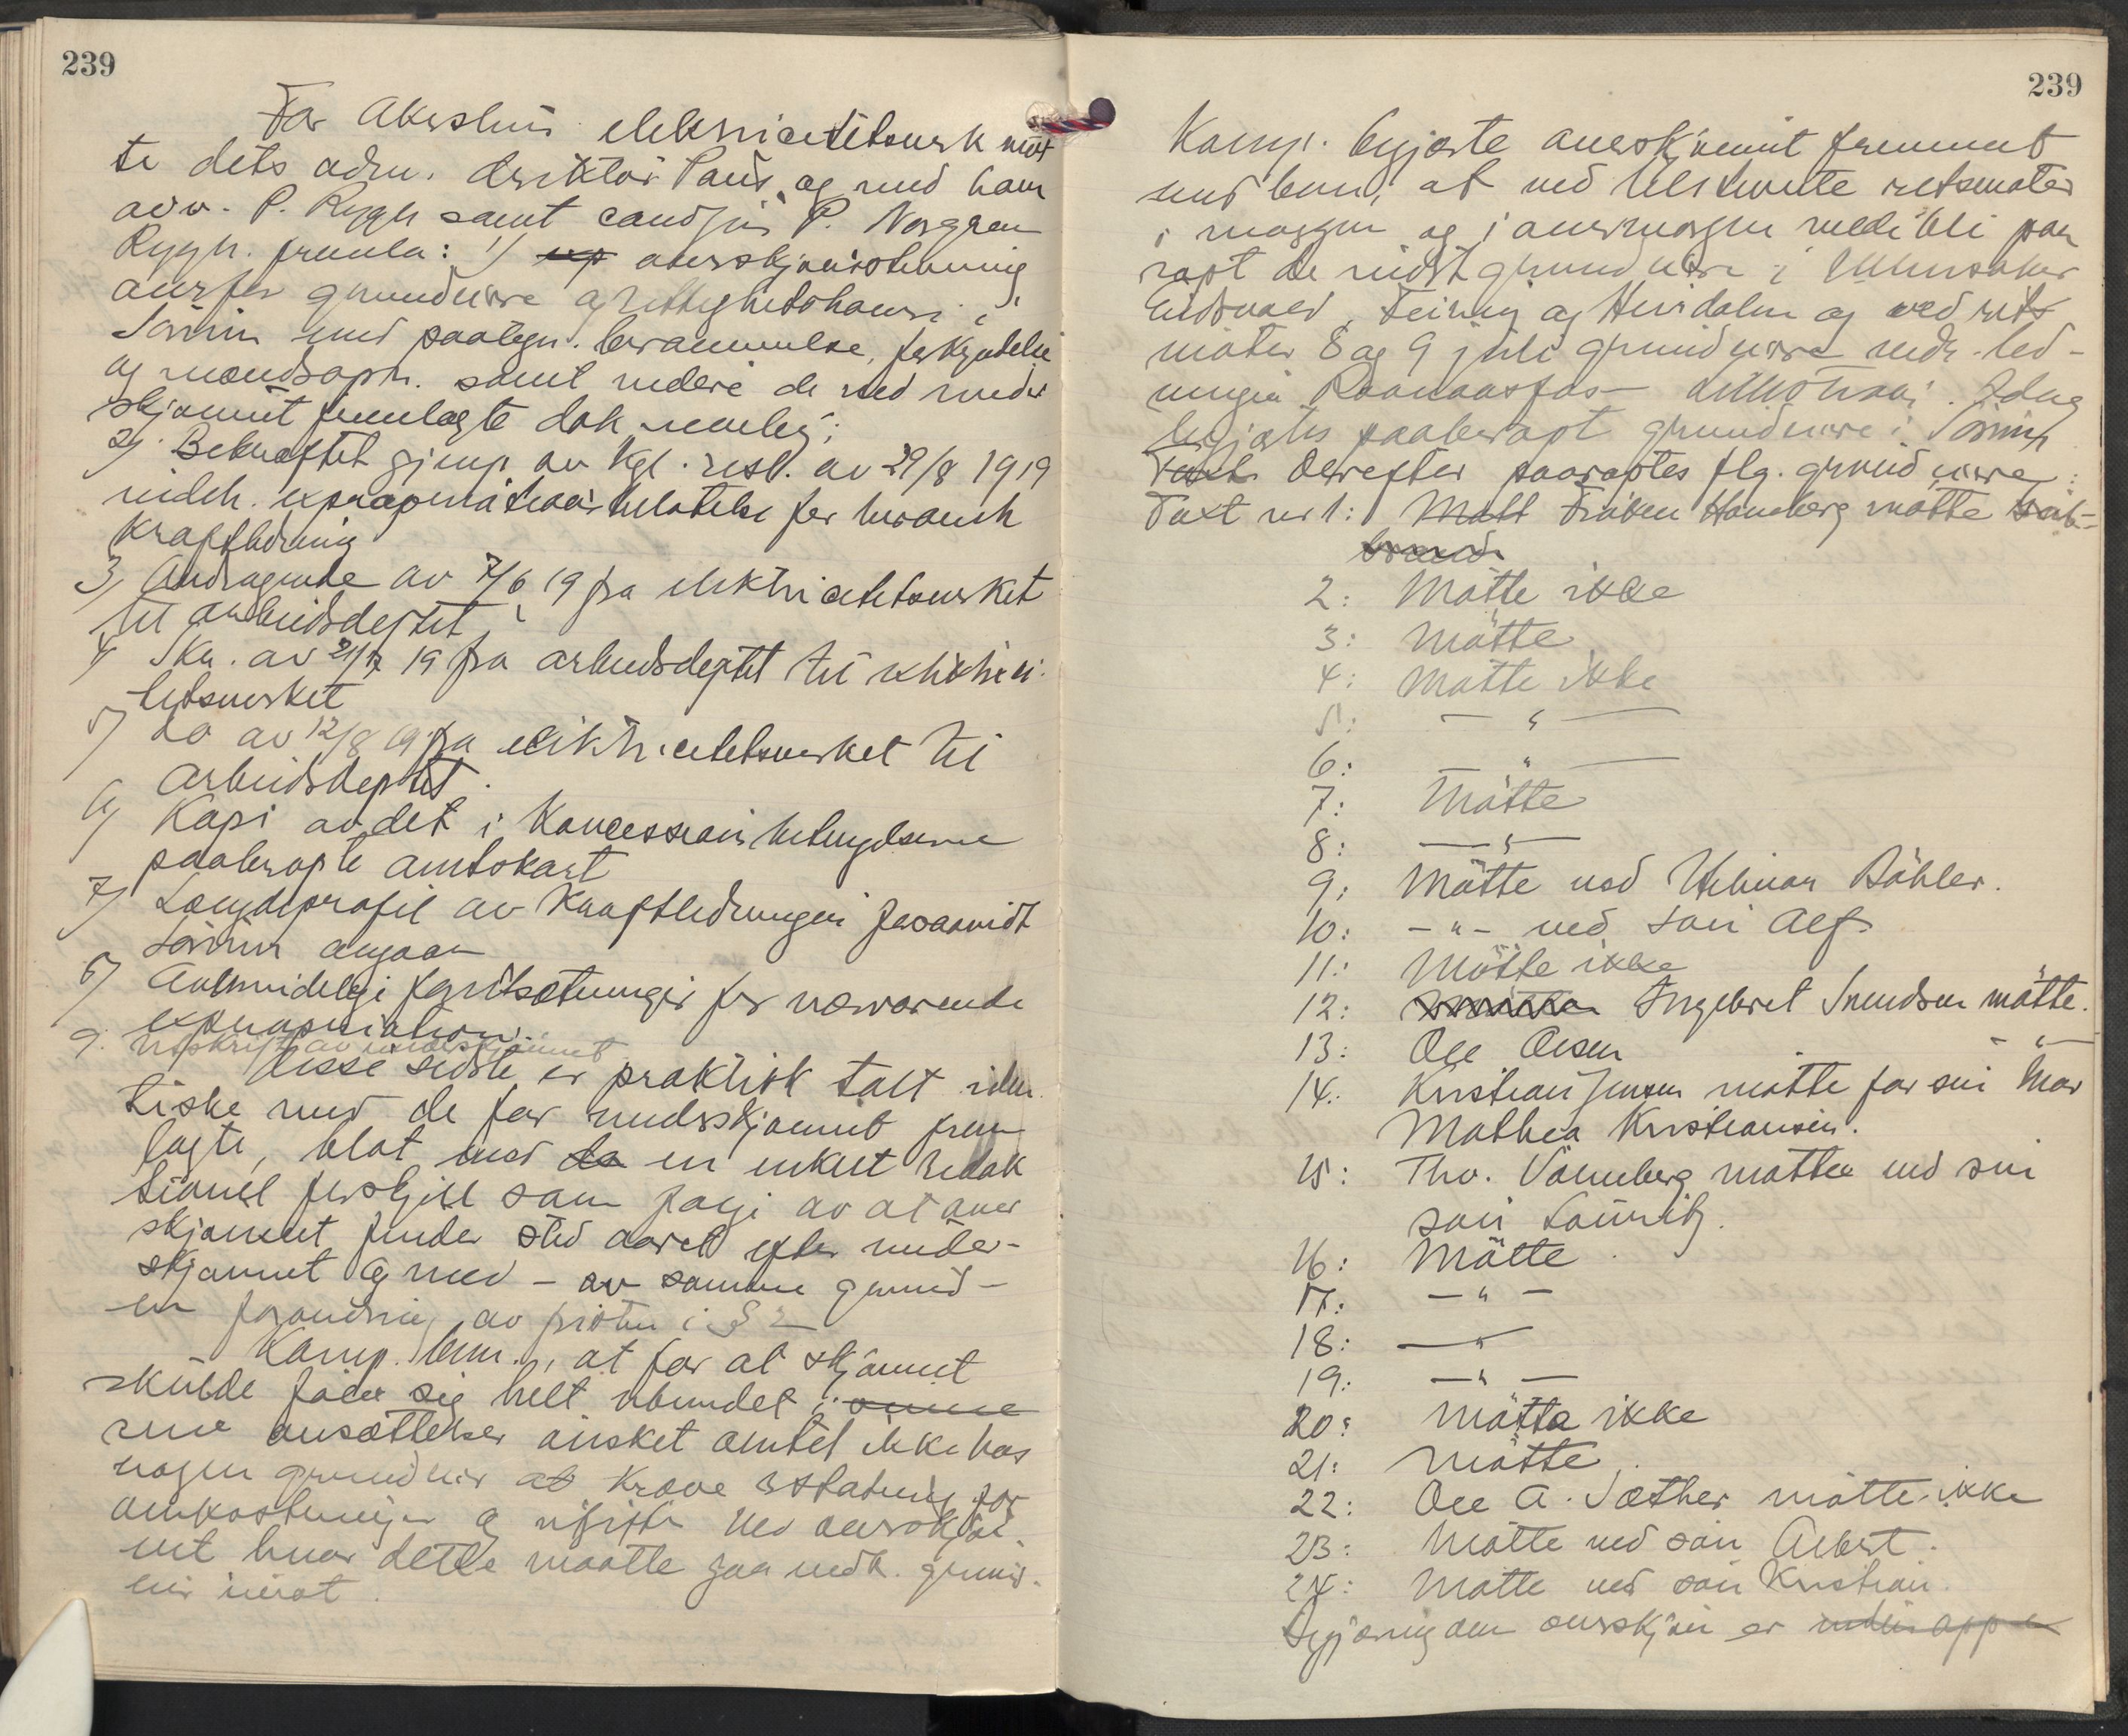 239
For Akershus elektricitetsverk møt
te dets adm. direktør Paus og med ham
adv. P. Rygh samt cand jur P. Norgren
Rygh. fremla: 1) overskjønsstevning
ansfer grundeiere og rettighetshavere i
Sørum med paategn. berammelse, forkyndelse
og mændsopn. samt videre de ved under
skjønnet fremlagte dok nemlig:
2) Bekræftet gjenp. av Kgl. resl. av 29/8 1919
indeh. expropriationstillatelse for
kraftledning
3) Andragende av 7/6 19 fra elektricitetsverket
til arbeidsdeptet
4 Skr. av 21/7 19 fra arbeidsdeptet til elektrici
tetsverket
5) do av 12/8 19 fra elektricitetsverket til
arbeidsdeptet.
6) Kopi av det i Koncessionsbetingelserne
paaberopte amtskart
7) Længdeprofil av Kraftledningen forsaavidt
Sørum angaar
8) Almindelige forutsætninger for nærværende
expropriation.
9. Utskrift av underskjønnet
Disse sidste er praktisk talt iden
tiske med de for underskjønnet frem
lagte, blot med en enkelt redak
tionel forskjel som følge av at over
skjønnet finder sted aaret efter under-
skjønnet og med - av samme grund -
en forandring av fristen i § 2
Komp. bem., at for at skjønnet
skulde føle sig helt ubundet i
sine ansættelser ønsket amtet ikke hos
nogen grundeier at kræve erstatning for
omkostninger ved overskjøn
net hvor dette maatte gaa vedk. grund-
eier imot.
239
Komp. begjærte overskjønnet fremmet
med bem, at ved tilstevnte retsmøter
i morgen og i overmorgen vilde bli paa
ropt de indst. grundeiere i Ullensaker
Eidsvold, Feiring og Hurdalen og ved rets
møter 8 og 9 juli grundeiere vedr. led-
ningen Raanaasfos - Lillestrøm. Idag
begjærtes paaberopt grundeiere i Sørum
Derefter paaroptes flg. grundeiere:
Taxt nr 1: Frøken Homberg møtte
2: Møtte ikke
3: Møtte
4: Møtte ikke
5: — " —
6: — " —
7: Møtte
8: — " —
9: Møtte ved Helmar Bøhler.
10: - " - ved søn Alf
11: Møtte ikke
12: Ingebret Svendsen møtte.
13: Ole Olsen - " -
14: Kristian Jensen møtte for sin mor
Mathea Kristiansen.
15: Thv. Vømberg møtte ved sin
søn Lauritz.
16: Møtte.
17: - " -
18: — " —
19: — " —
20: Møtte ikke
21: Møtte
22: Ole A. Sæther møtte ikke
23: Møtte ved søn Albert.
24: Møtte ved søn Kristian.
Begjæring om overskjøn er